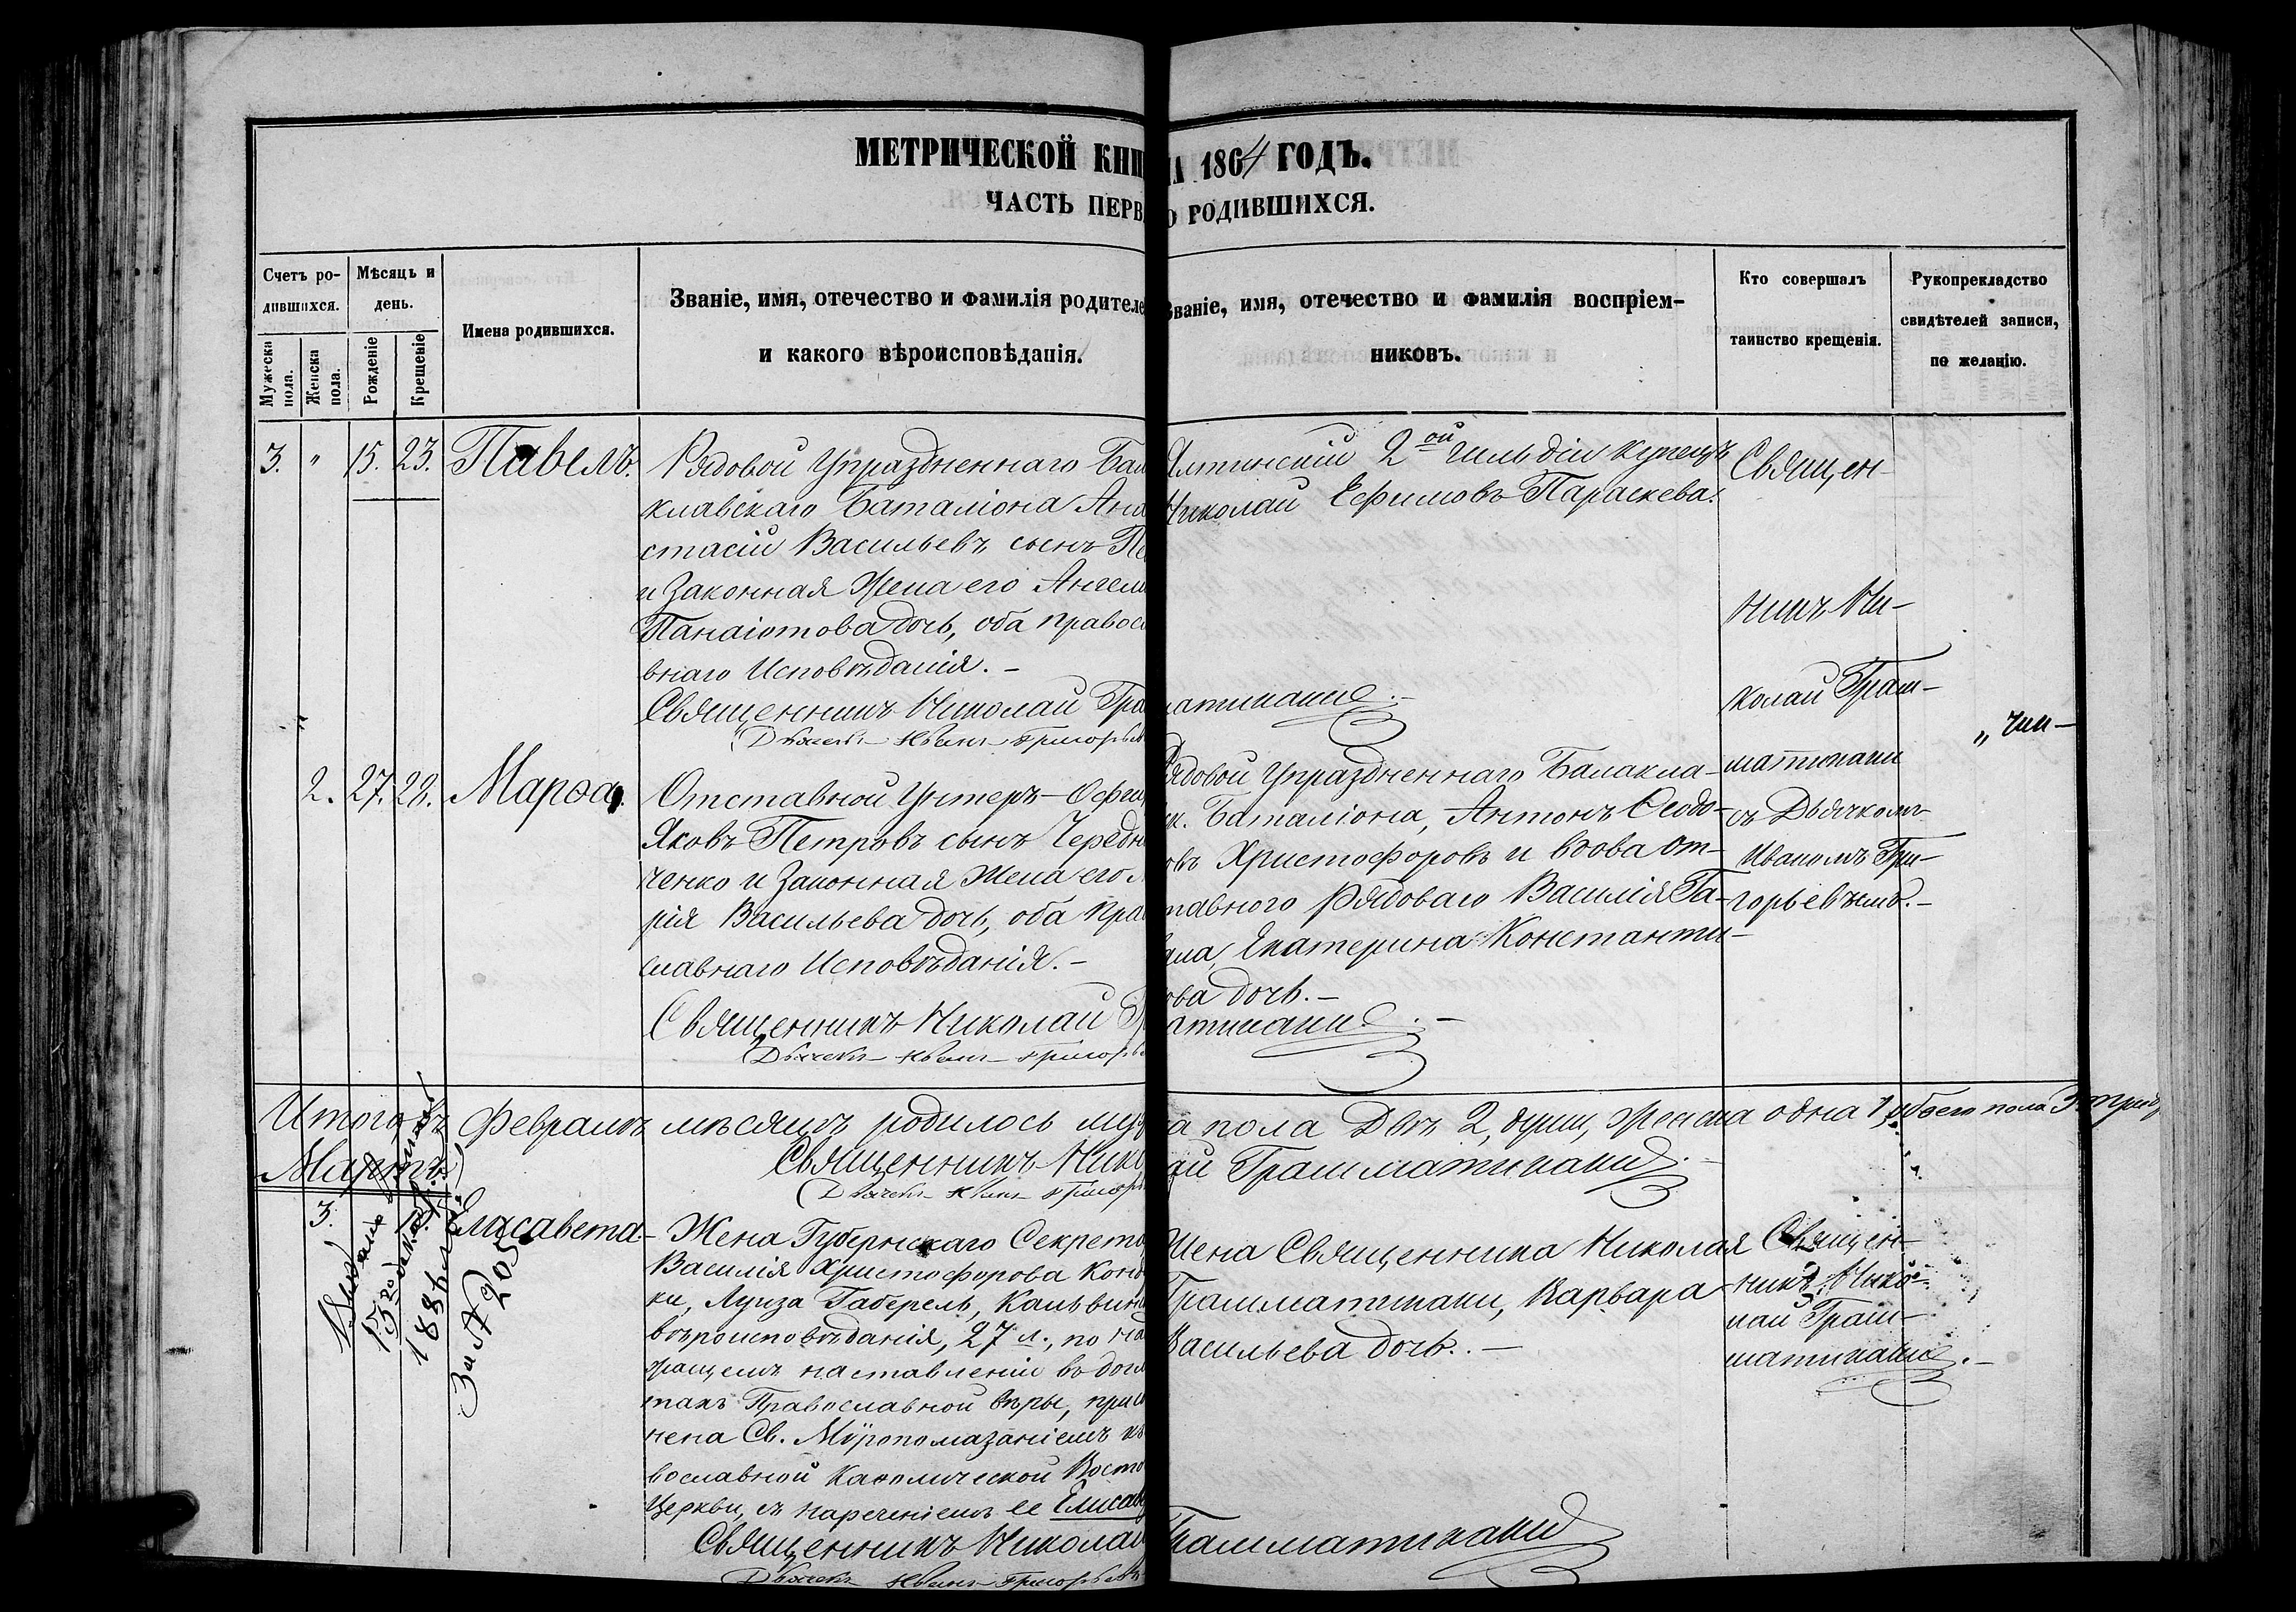 МЕТРИЧЕСКОЙ КНИ
А 1864 ГОДЪ.
ЧАСТЬ ПЕРВ
О РОДИВШИХСЯ.
Счетъ ро-
дившихся.
Мужеска пола.
Женска пола.
Мѣсяцъ и
день.
Рожденіе
Крещеніе
Имена родившихся.
Званіе, имя, отечество и фамилія родителе
и какого вѣроисповѣданія.
Званіе, имя, отечество и фамилія воспріем-
никовъ.
Кто совершалъ
таинство крещенія.
Рукоприкладство
свидѣтелей записи,
по желанію.
3. " 15. 23. Павелъ.
Рядовой Упраздненнаго Бал
клавскаго Баталіона Ана
стасій Васильевъ сынъ
и Законная Жена его Ангели
Панаіотова дочь, оба правос
внаго Исповѣданія. -
Священникъ Николай Гра
Дьячекъ Иванъ Григорьев
Ялтинскій 2ой гильдіи купецъ
Николай Ефимовъ Параскева.
матикаки. -
Священ-
никъ Ни-
колай Грам-
матикаки
съ Дьячкомъ
Иваномъ Гри-
горьевымъ. -
2. 27. 28. Марѳа.
Отставной Унтеръ-Офи
Яковъ Петровъ сынъ Чередн
ченко и Законная Жена его
рія Васильева дочь, оба пра
славнаго Исповѣданія. -
Священникъ Николай
Дьячекъ Иванъ Григорьев
Рядовой Упраздненнаго Балакла-
ск. Баталіона, Антонъ Ѳеодо-
овъ Христофоровъ и вдова от-
тавного Рядоваго Василія Га-
Екатерина Константи-
ова дочь. -
атикаки. -
Итого въ Февралѣ мѣсяцѣ родилось муж
а пола двѣ 2, души, женска одна 1, обоего пола 3 три,
Священникъ Нико
ай Грамматикаки.
Дьячекъ Иванъ Григорь
Мартъ.
3. Елисавета. -
За № 205
Жена Губернскаго Секрета
Василія Христофорова
ки, Луиза Габерель, Кальвин
вѣроисповѣданія, 27 л., по над
жащемъ наставленіи въ дог
тахъ Православной вѣры, прис
нена Св. Мѵропомазаніемъ къ
вославной Каѳолической Восто
Церкви, съ нареченіемъ ее Елисав
Священникъ Николай
Дьячекъ Иванъ Григорьевъ
Жена Священника Николая
Грамматикаки, Варвара
Васильева дочь. -
Грамматикаки
Священ-
никъ Нико-
лай Грам-
матикаки. -